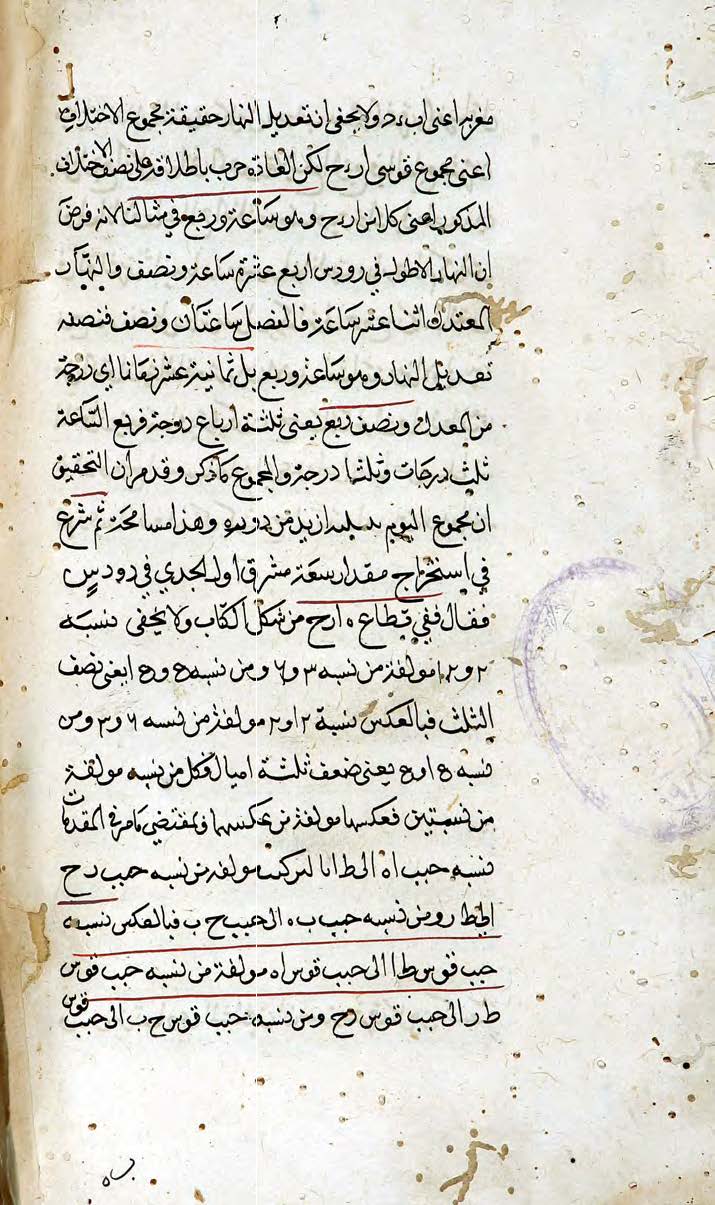 مغربه اعنى اب ه د ولا يخفى ان تعديل النهار حقيقة مجموع الاختلاف
اعنى مجموع قوسى ا ر ح لكن العادة جرت باطلاقه على نصف الاختلاف
المذكور اعنى كلا من ا ر ح وهو ساعة وربع فى مثالنا لانه فرض
ان النهار الاطول فى رودس اربع عشرة ساعة ونصف والنهار
المعتدل اثنا عشر ساعة فالفضل ساعتان ونصف فنصفه
تعديل النهار وهو ساعة وربع بل ثمانية عشر زمانا اى درجة
من المعدل ونصف ربع يعنى ثلثة ارباع درجة فربع الساعة
ثلث درجات وثلثا درجة والمجموع كما ذكر وقد مر ان التحقيق
ان مجموع اليوم بليلته ازيد من دورة وهذا مسامحة ثم شرع
فى استخراج مقدار سعة مشرق اول الجدي فى رودس
فقال ففى قطاع ه ا ر ح من شكل الكتاب ولا يخفى نسبة
٢ و ١٢ مولفة من نسبة ٣ و ٦ ومن نسبة يعنى نصف
الثلث فبالعكس نسبة ١٢ و ٢ مولفة من نسبة ٦ و ٣ ومن
نسبة يعنى ضعف ثلثة امثال فكل من نسبة مولفة
من نسبتين فعكسها مولفة من عكسهما وبمقتضى ما مر فى المقدمات
نسبة جيب ا ه الى ط ا بالتركيب مولفة من نسبة جيب ر ح
الى ط ر ومن نسبة جيب ب ه الى جيب ح ب فبالعكس نسبة
جيب قوس ط ا الى جيب قوس ا ه مولفة من نسبة جيب قوس
ط ر الى جيب قوس ر ح ومن نسبة جيب قوس ح ب الى جيب قوس
ب ه